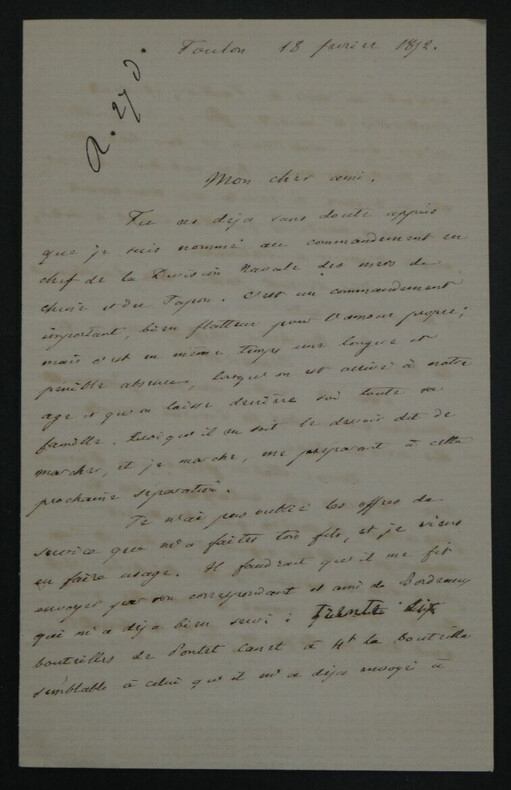 Toulon 18 février 1872.
a. 27 d.
Mon cher ami.
Tu as deja sans doute appris
que je suis nommé au commandement en
chef de la Division Navale des mers de
Chine et du Japon. C'est un commandement
important, bien flatteur pour l'amour propre;
mais c'est en même temps une longue et
penible absence, lorsqu'on est arrivé à notre
age et qu'on laisse derrière soi toute sa
famille. Quoiqu'il en soit le devoir dit de
marcher, et je marche, me preparant à cette
prochaine separation.
Je n'ai pas oublié les offres de
service que m'a faites ton fils, et je viens
en faire usage. Il faudrait qu'il me fit
envoyer par son correspondant et ami de Bordeaux
qui m'a deja bien servi : trente six
bouteilles de Pontet Canet à 4f la bouteille
semblable à celui qu'il m'a deja envoyé à